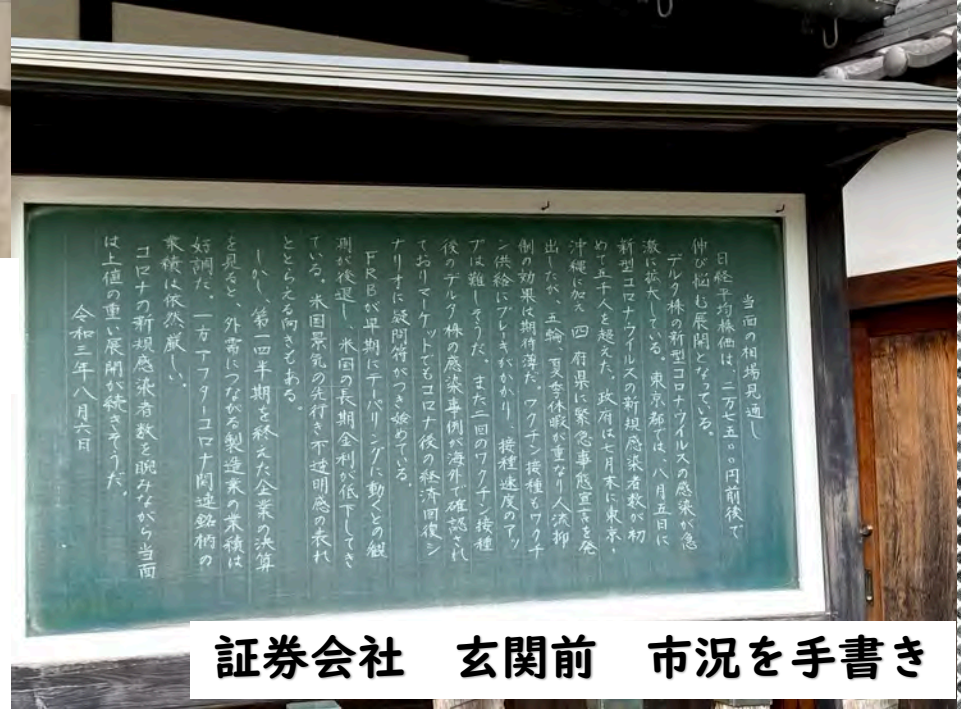 当面の相場見通し
日経平均株価は、二万七五〇〇円前後で
伸び悩む展開となっている。
デルタ株の新型コロナウイルスの感染が急
激に拡大している。東京都では、八月五日に
新型コロナウイルスの新規感染者数が初
めて五千人を超えた。政府は七月末に東京・
沖縄に加え四府県に緊急事態宣言を発
出したが、五輪、夏季休暇が重なり人流抑
制の効果は期待薄だ。ワクチン接種もワクチ
ン供給にブレーキがかかり、接種速度のアッ
プは難しそうだ。また二回のワクチン接種
後のデルタ株の感染事例が海外で確認され
ておりマーケットでもコロナ後の経済回復シ
ナリオに疑問符がつき始めている。
FRBが早期にテーパリングに動くとの観
測が後退し、米国の長期金利が低下してき
ている。米国景気の先行き不透明感の表れ
ととらえる向きもある。
しかし、第一四半期を終えた企業の決算
を見ると、外需につながる製造業の業績は
好調だ。一方アフターコロナ関連銘柄の
業績は依然厳しい。
コロナの新規感染者数を睨みながら当面
は上値の重い展開が続きそうだ。
令和三年八月六日
証券会社　玄関前　市況を手書き